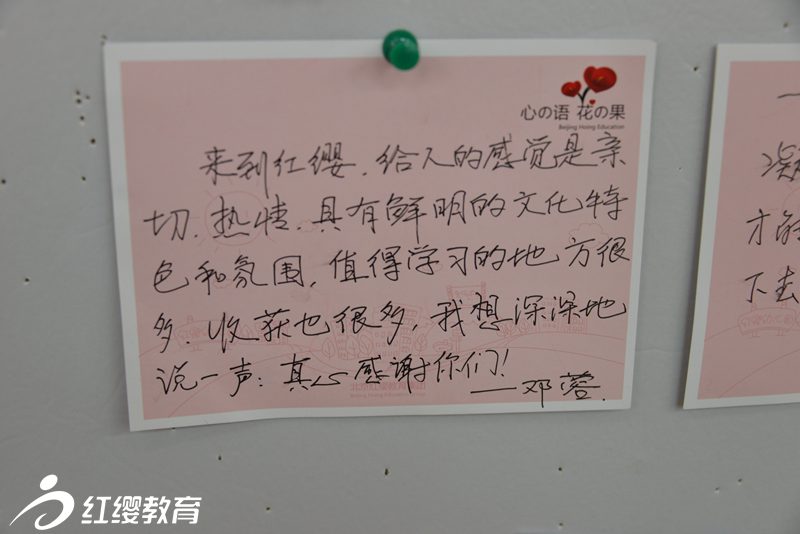 心の语 花の果
Beijing Hoing Education
来到红缨,给人的感觉是亲
切、热情,具有鲜明的文化特
色和氛围,值得学习的地方很
多,收获也很多,我想深深地
说一声:真心感谢你们!
——邓蓉.
一
凝
才能
下去
红缨教育